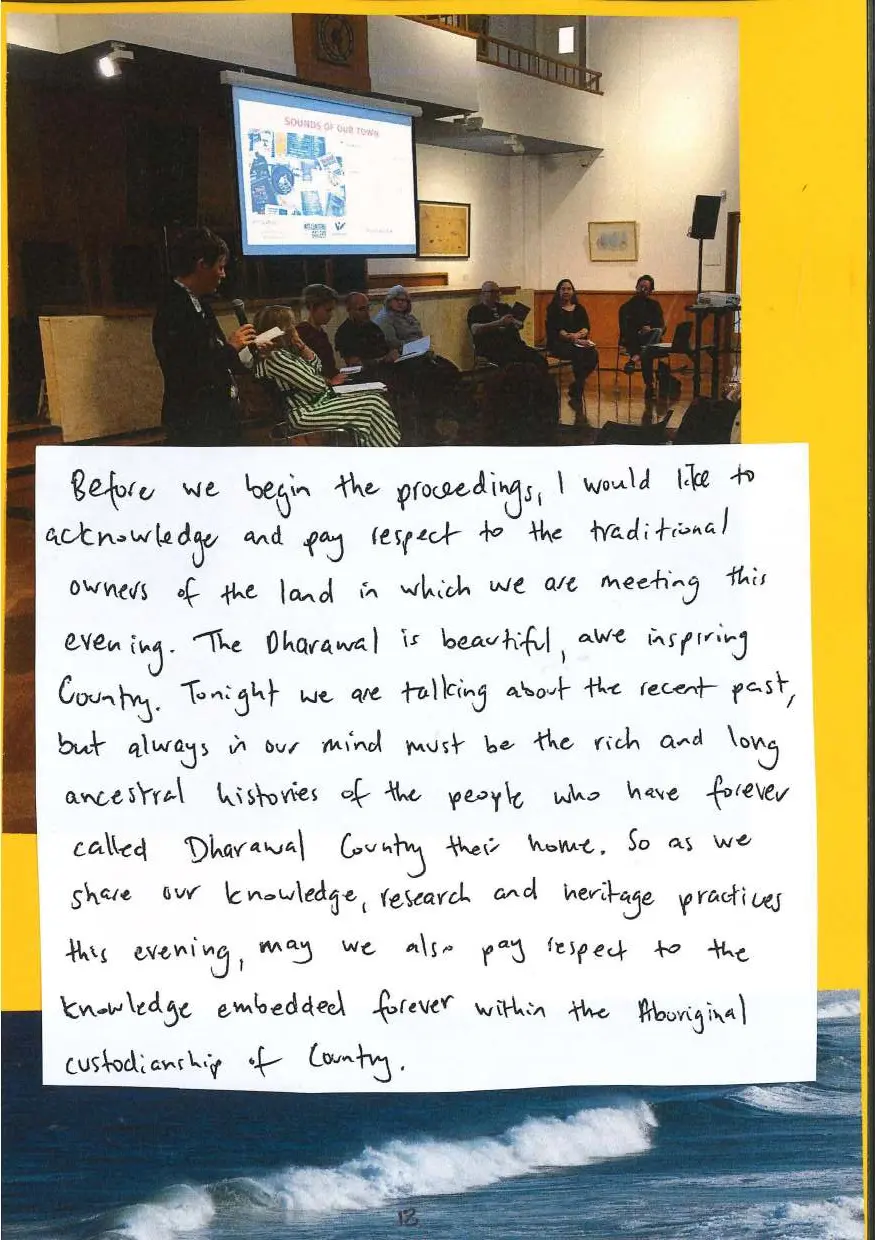 SOUNDS OF OUR TOWN
Before we begin the proceedings, I would like to
acknowledge and pay respect to the traditional
owners of the land in which we are meeting this
evening. The Dharawal is beautiful, awe inspiring
Country. Tonight we are talking about the recent past,
but always in our mind must be the rich and long
ancestral histories of the people who have forever
called Dharawal Country their home. So as we
share our knowledge, research and heritage practices
this evening, may we also pay respect to the
knowledge embedded forever within the Aboriginal
custodianship of Country.